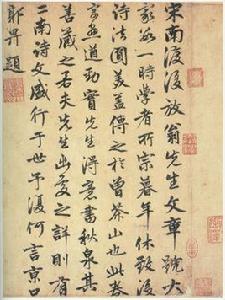 宋南渡後放翁先生文章號大
家數一時學者所宗暮年休致後
詩法圓美蓋傳之於曾茶山也此卷
字畫遒勁實先生得意書秋泉其
善藏之若夫先生出處之詳則有
二南詩文盛行于世予復何言京口
郭畀題